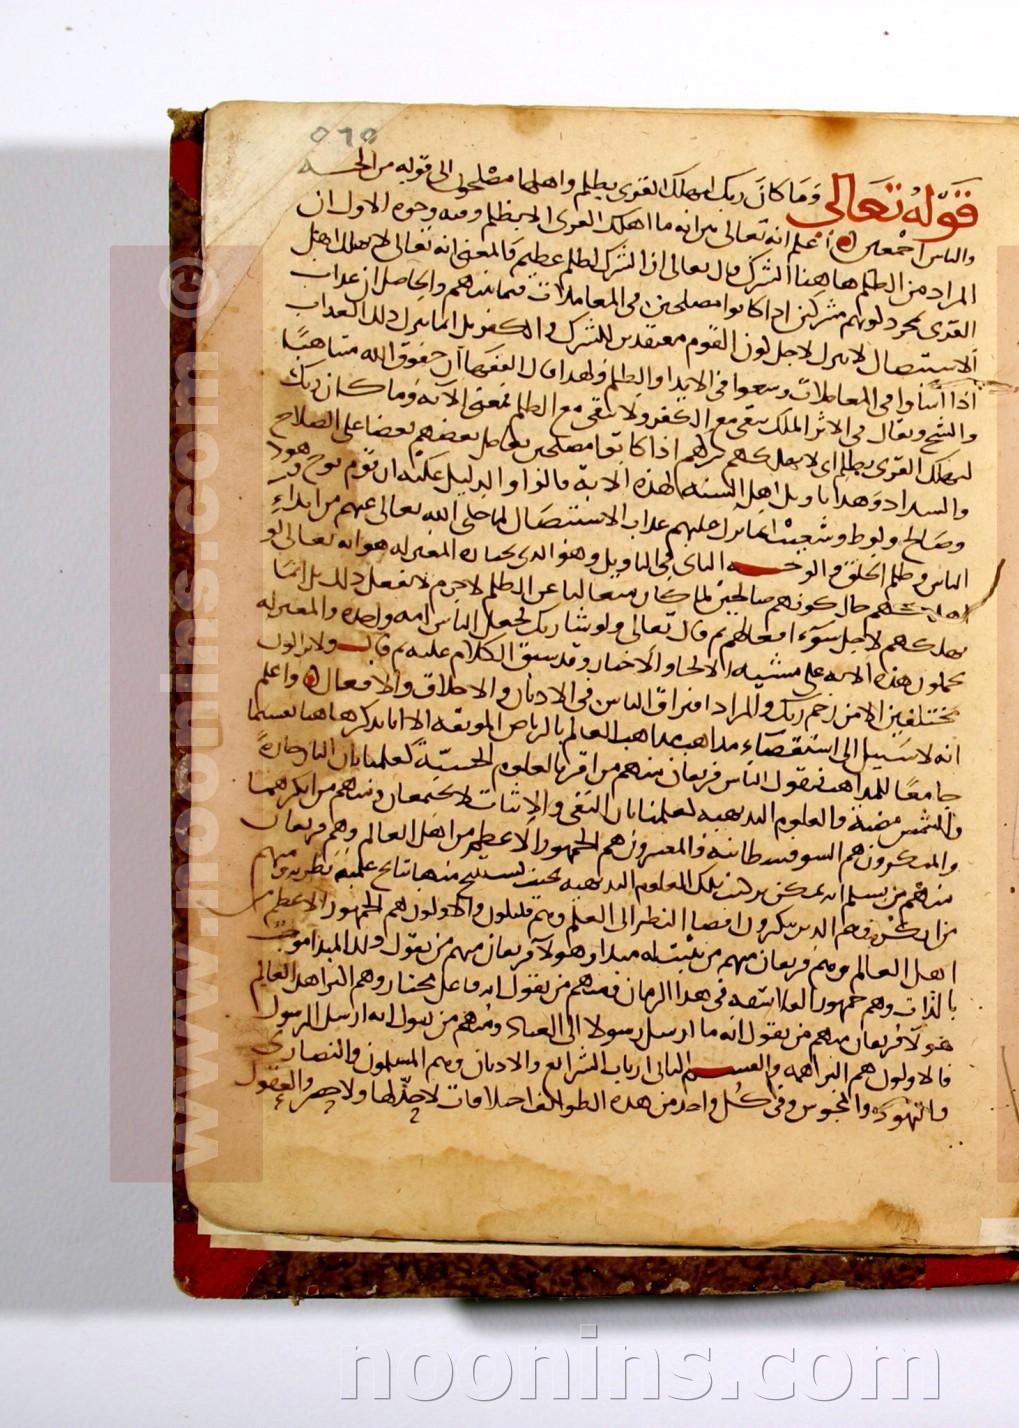 ٥٦٥
قوله تعالى وما كان ربك ليهلك القرى بظلم واهلها مصلحون الى قوله من الجنه
والناس اجمعين اعلم انه تعالى بين انه ما اهلك القرى الا بظلم وفيه وجوه الاول ان
المراد من الظلم هاهنا الشرك قال تعالى ان الشرك لظلم عظيم والمعنى انه تعالى لا يهلك اهل
القرى بمجرد كونهم مشركين اذا كانوا مصلحين في المعاملات فيما بينهم والحاصل ان عذاب
الاستيصال لا ينزل لاجل كون القوم معتقدين للشرك والكفر بل انما ينزل ذلك العذاب
اذا اساوا في المعاملات وسعوا في الايذا والظلم ولهذا قال الفقها ان حقوق الله مبناها
والشح ويقال في الاثر الملك يبقى مع الكفر ولا يبقى مع الظلم فمعنى الآيه وما كان ربك
ليهلك القرى بظلم اى لا يهلكهم بمجرد شركهم اذا كانوا مصلحين يعامل بعضهم بعضا على الصلاح
والسداد وهذا تاويل اهل السنه لهذه الاية قالوا والدليل عليه ان قوم نوح وهود
وصالح ولوط وشعيب انما نزل عليهم عذاب الاستئصال لما حكى الله تعالى عنهم من ايذاء
الناس وظلم الخلق والوجه الثاني في التاويل وهو الذى تختاره المعتزله هو انه تعالى لو
اهلكهم حال كونهم صالحين لما كان متعاليا عن الظلم لا جرم لا يفعل ذلك بل انما
يهلكهم لاجل سوء افعالهم ثم قال تعالى ولو شا ربك لجعل الناس امه واحده والمعتزله
يحملون هذه الايه على مشيه الالجا والاجبار وقد سبق الكلام عليه ثم قال ولا يزالون
مختلفين الا من رحم ربك والمراد افتراق الناس في الاديان والاخلاق والافعال واعلم
انه لا سبيل الى استقصاء مذاهب العالم الا انا نذكر هاهنا تقسيما
جامعا للمذاهب فنقول الناس فريقان منهم من اقر بالعلوم الحسيّة كعلمنا بان النار حارة
والشمس مضيه والعلوم البديهيه كعلمنا بان النفي والاثبات لا يجتمعان ومنهم من انكرهما
والمنكرون هم السوفسطائيه والمعترفون هم الجمهور الاعظم من اهل العالم وهم فريقان
منهم من يسلم انه يمكن تركيب تلك العلوم البديهيه بحيث يستنتج منها نتائج علميه نظريه ومنهم
من انكره وهم الذين ينكرون ايضا النظر الى العلم وهم قليلون والاولون هم الجمهور الاعظم من
اهل العالم وهم فريقان منهم من يقول ذلك المبدا موجب
بالذات وهم جمهور الفلاسفه في هذا الزمان ومنهم من يقول انه فاعل مختار وهم اكثر اهل العالم
هولا فريقان منهم من يقول انه ما ارسل رسولا الى العباد ومنهم من يقول انه ارسل الرسول
فالاولون هم البراهمه والقسم الثاني ارباب الشرائع والاديان وهم المسلمون والنصارى
واليهود والمجوس وفي كل واحد من هذه الطوائف اختلافات لا حد لها ولا حصر والعقول
© www.noonins.com
noonins.com